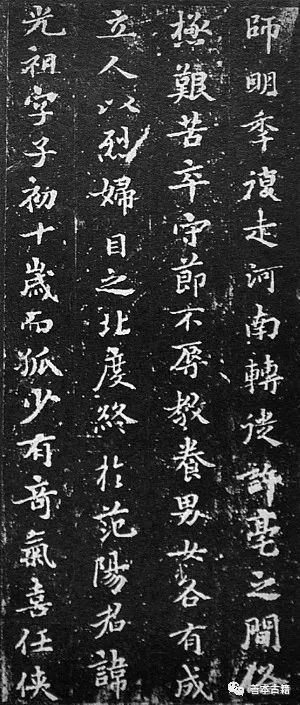 師明季復走河南轉徙許亳之間從
極艱苦卒守節不辱教養男女各有成
立人以烈婦目之北度終於范陽君諱
光祖字子初十歲而孤少有奇氣喜任俠
善本古籍